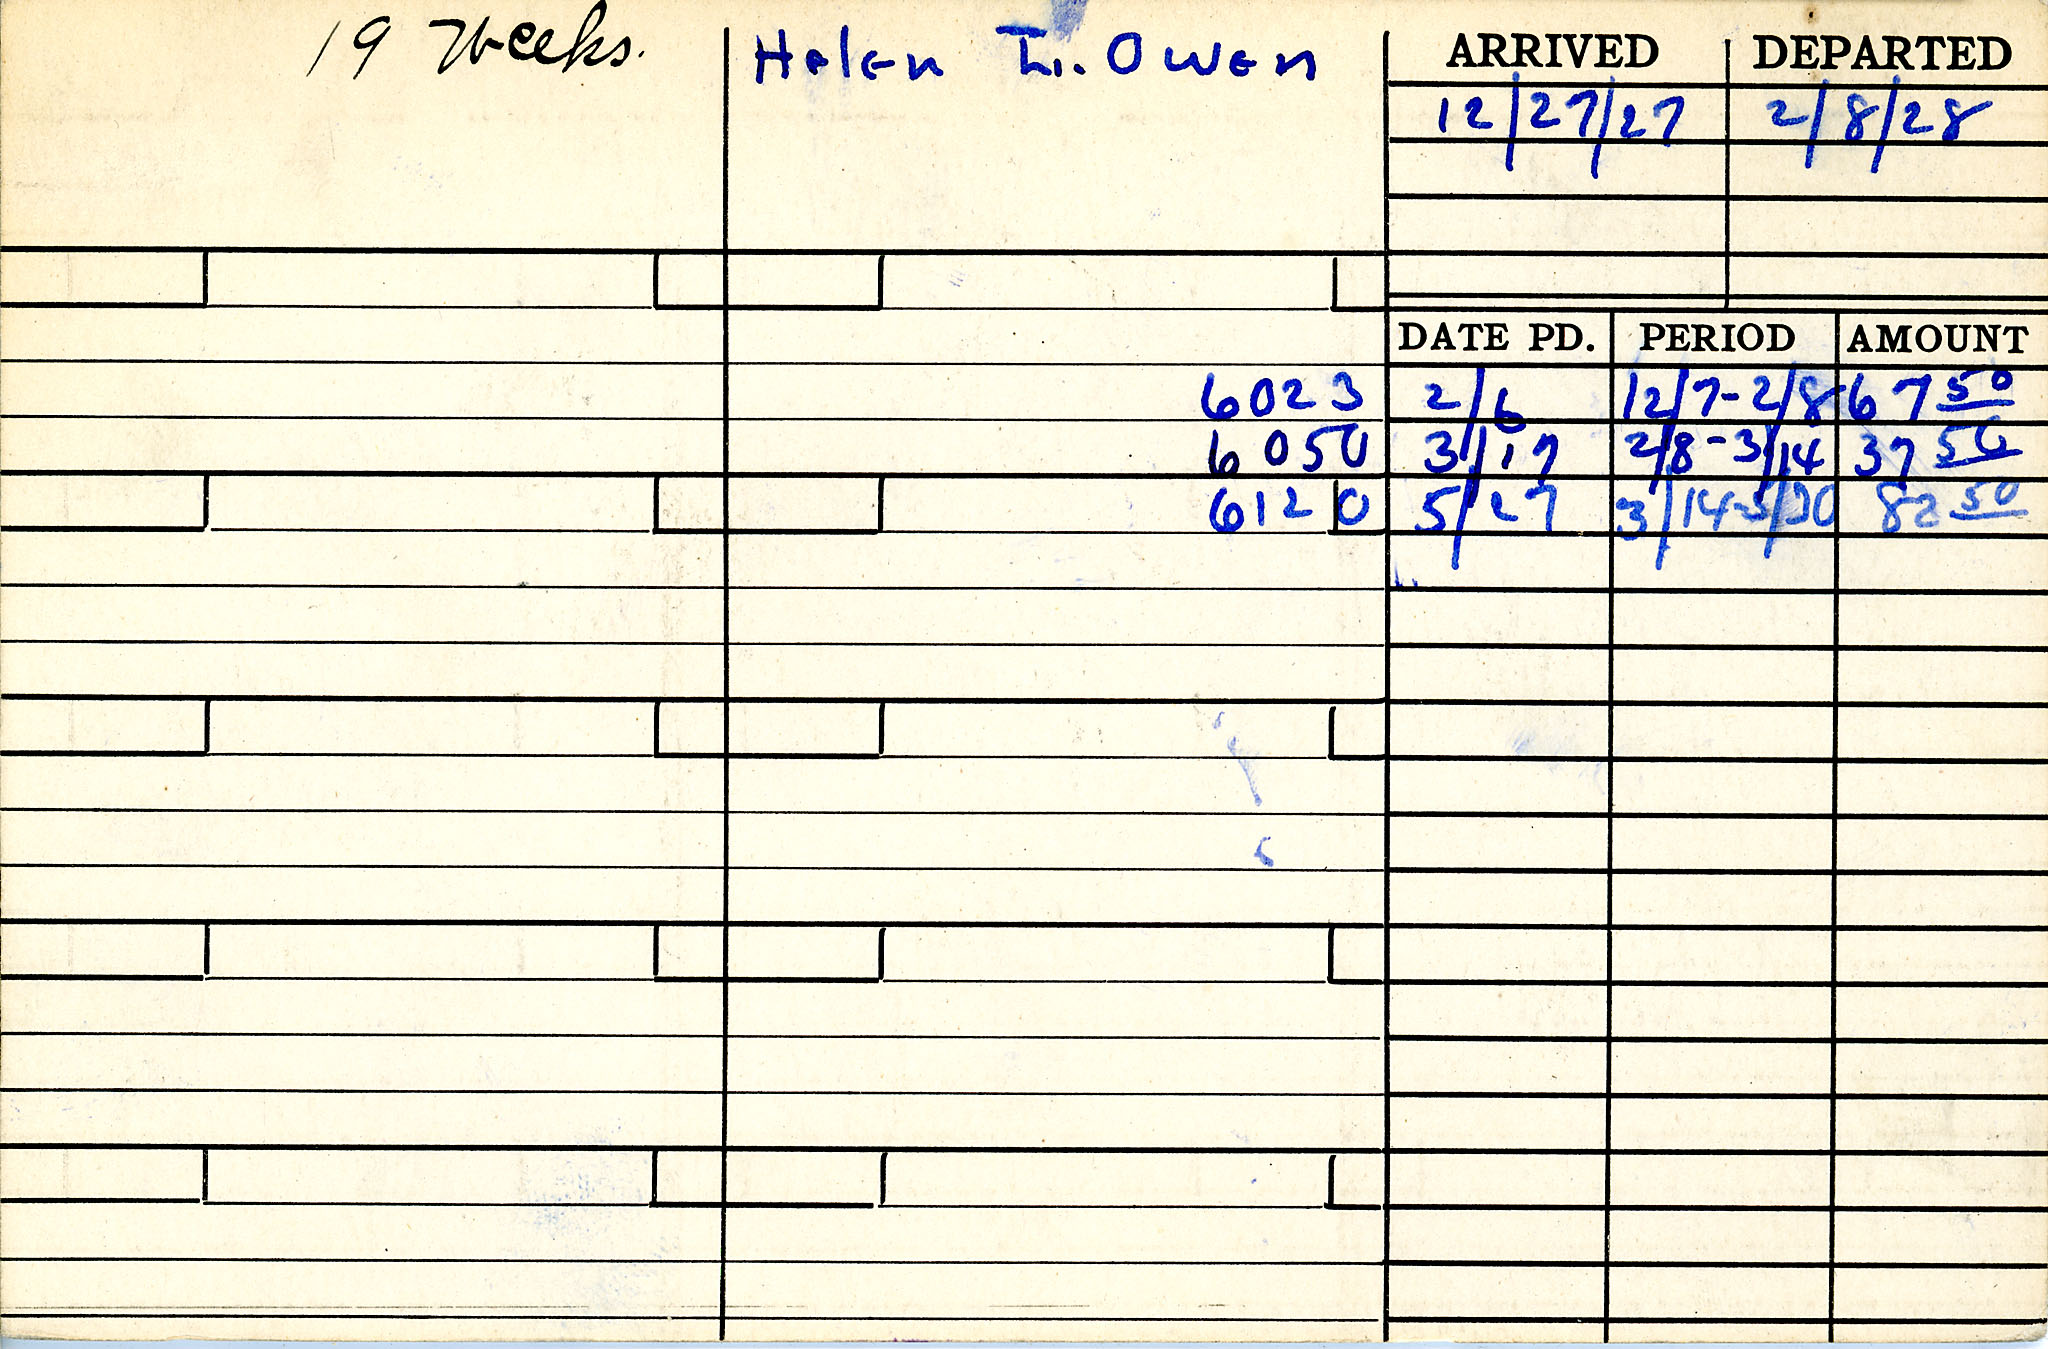 19 Weeks.
Helen L. Owen
ARRIVED DEPARTED
12/27/27 2/8/28
DATE PD. PERIOD AMOUNT
6023 2/6 12/7-2/8 67 50
6050 3/17 2/8-3/14 37 50
6120 5/27 3/14-5/30 82 50